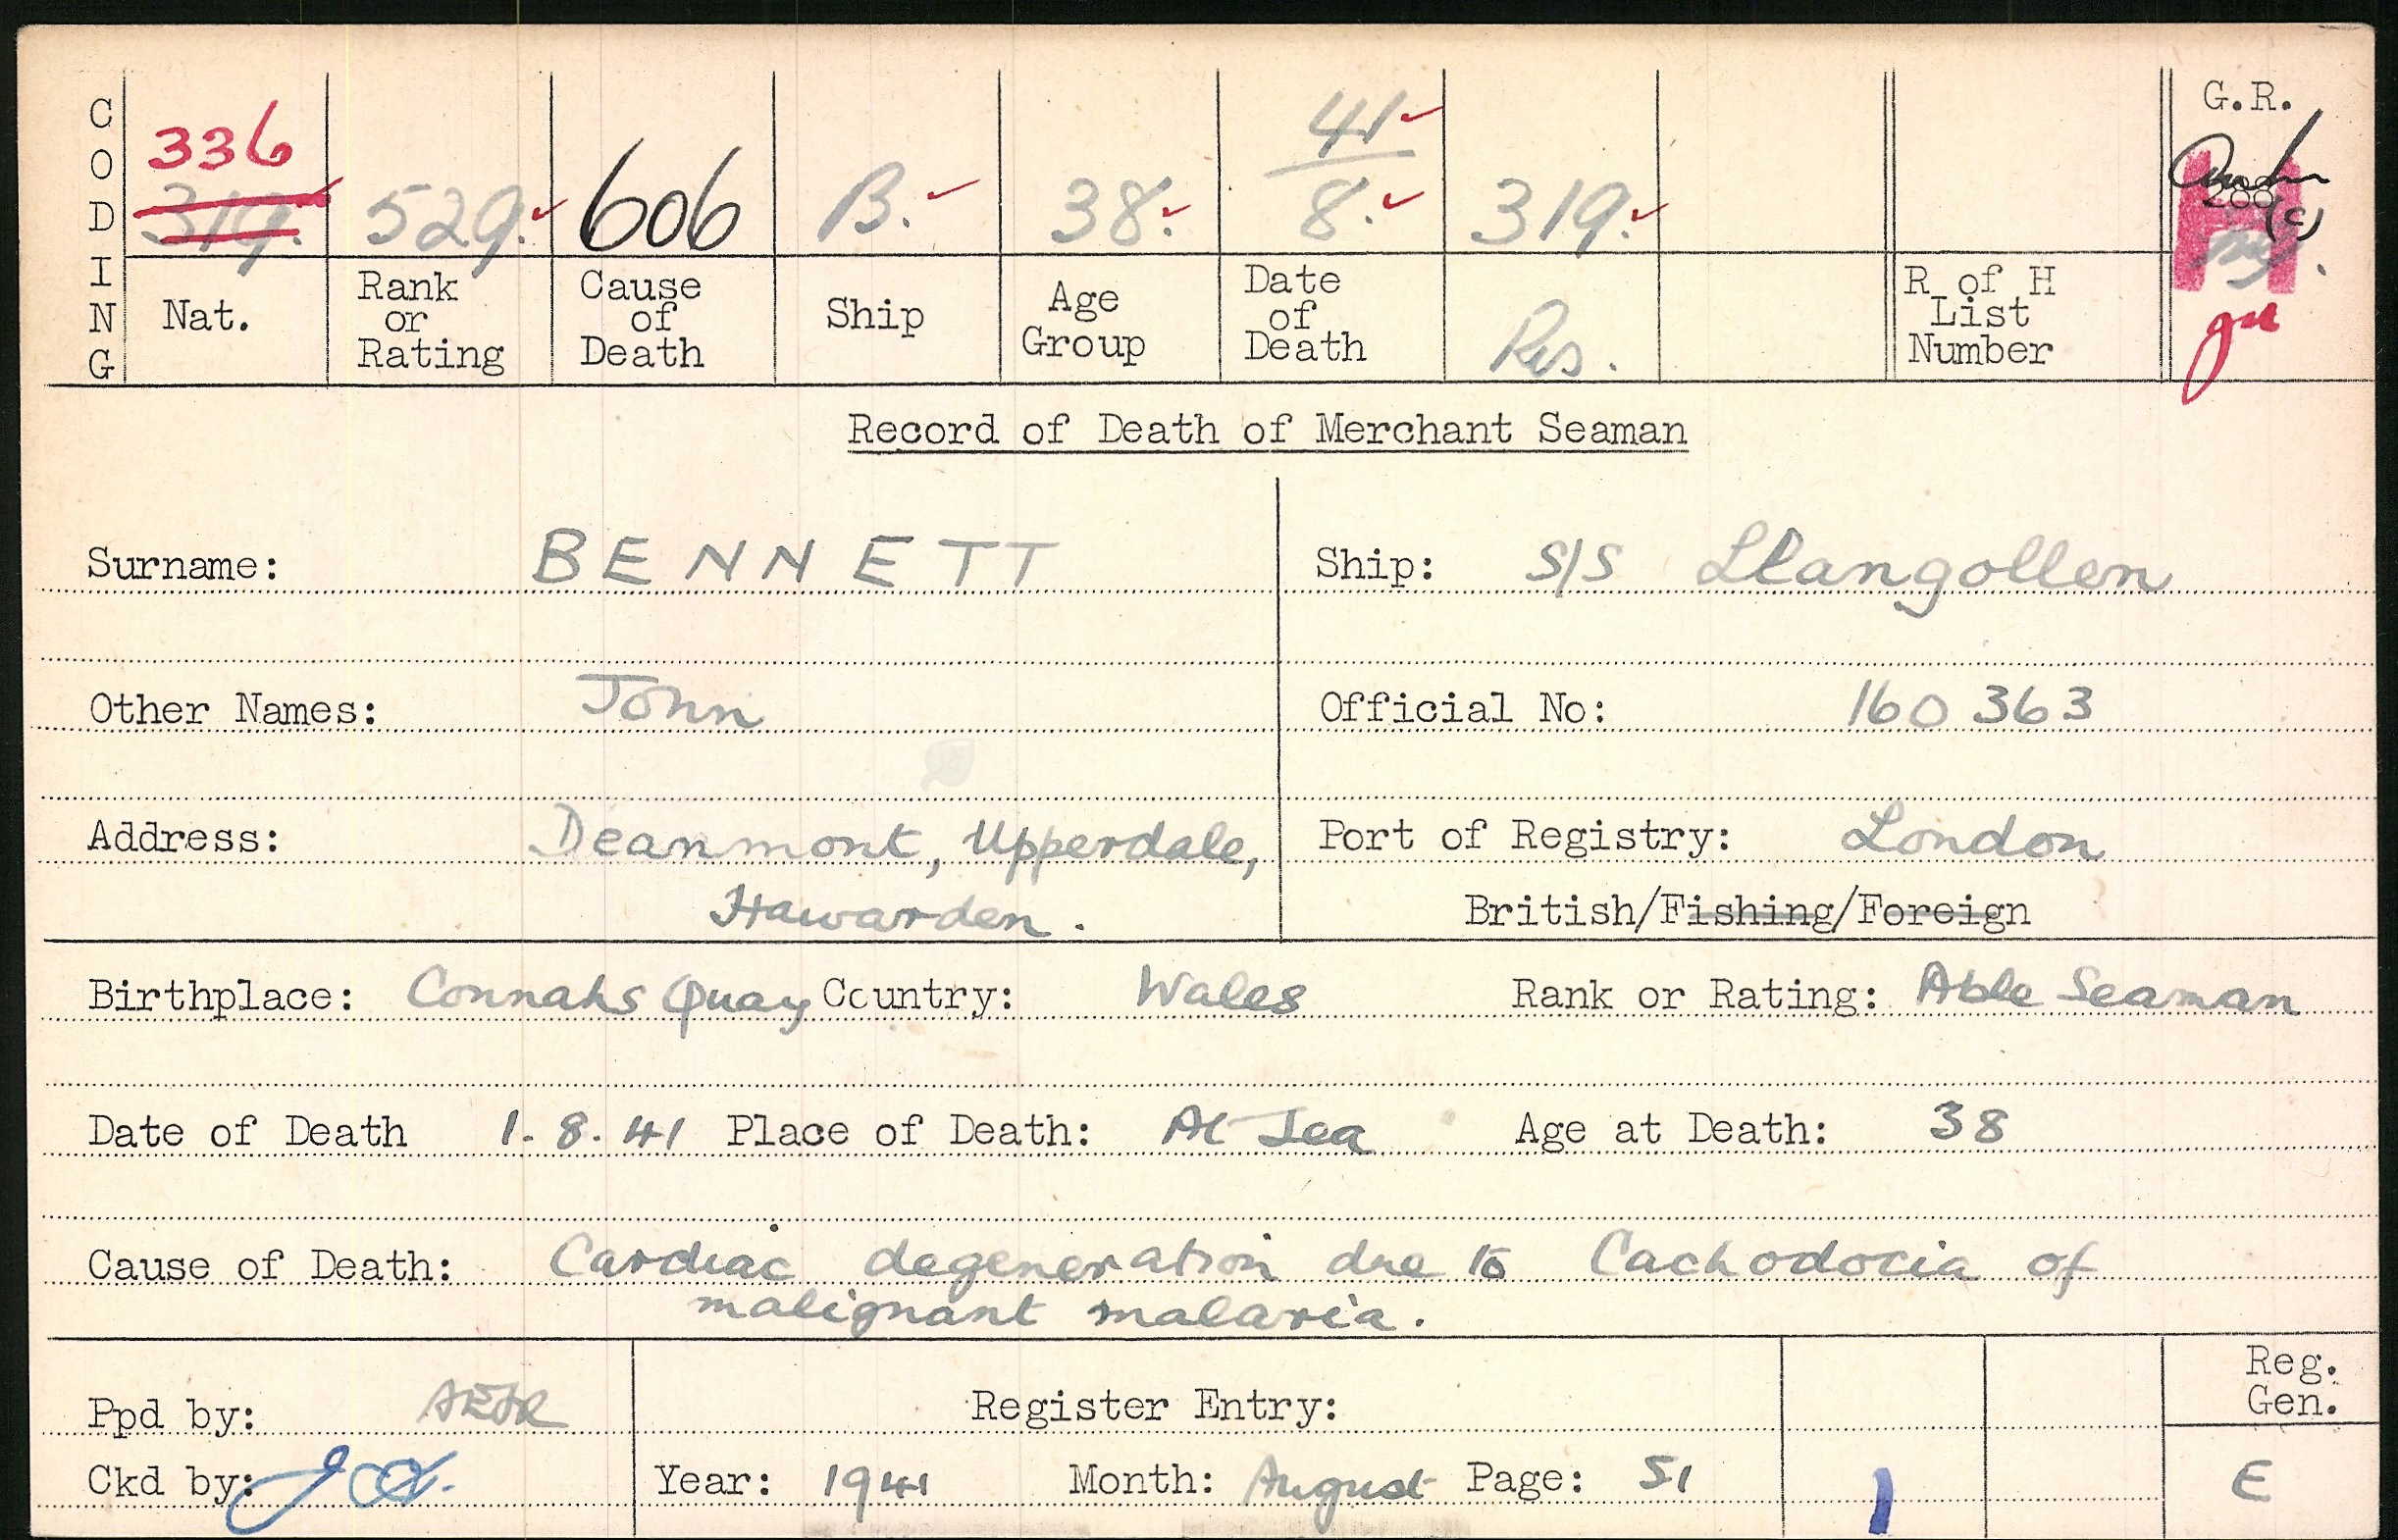 CODING
336
319.
529.
606
B.
38.
41
8.
319.
G.R.
288
(c)
H
Nat.
Rank
or
Rating
Cause
of
Death
Ship
Age
Group
Date
of
Death
Res.
R of H
List
Number
Record of Death of Merchant Seaman
Surname: BENNETT
Ship: S/S Llangollen
Other Names: John
Official No: 160363
Address: Deanmont, Upperdale,
Hawarden.
Port of Registry: London
British/Fishing/Foreign
Birthplace: Connahs Quay Country: Wales Rank or Rating: Able Seaman
Date of Death 1.8.41 Place of Death: At Sea Age at Death: 38
Cause of Death: Cardiac degeneration due to Cachodocia of
malignant malaria.
Ppd by:
Register Entry:
Reg.
Gen.
Ckd by:
Year: 1941 Month: August Page: 51
1
E